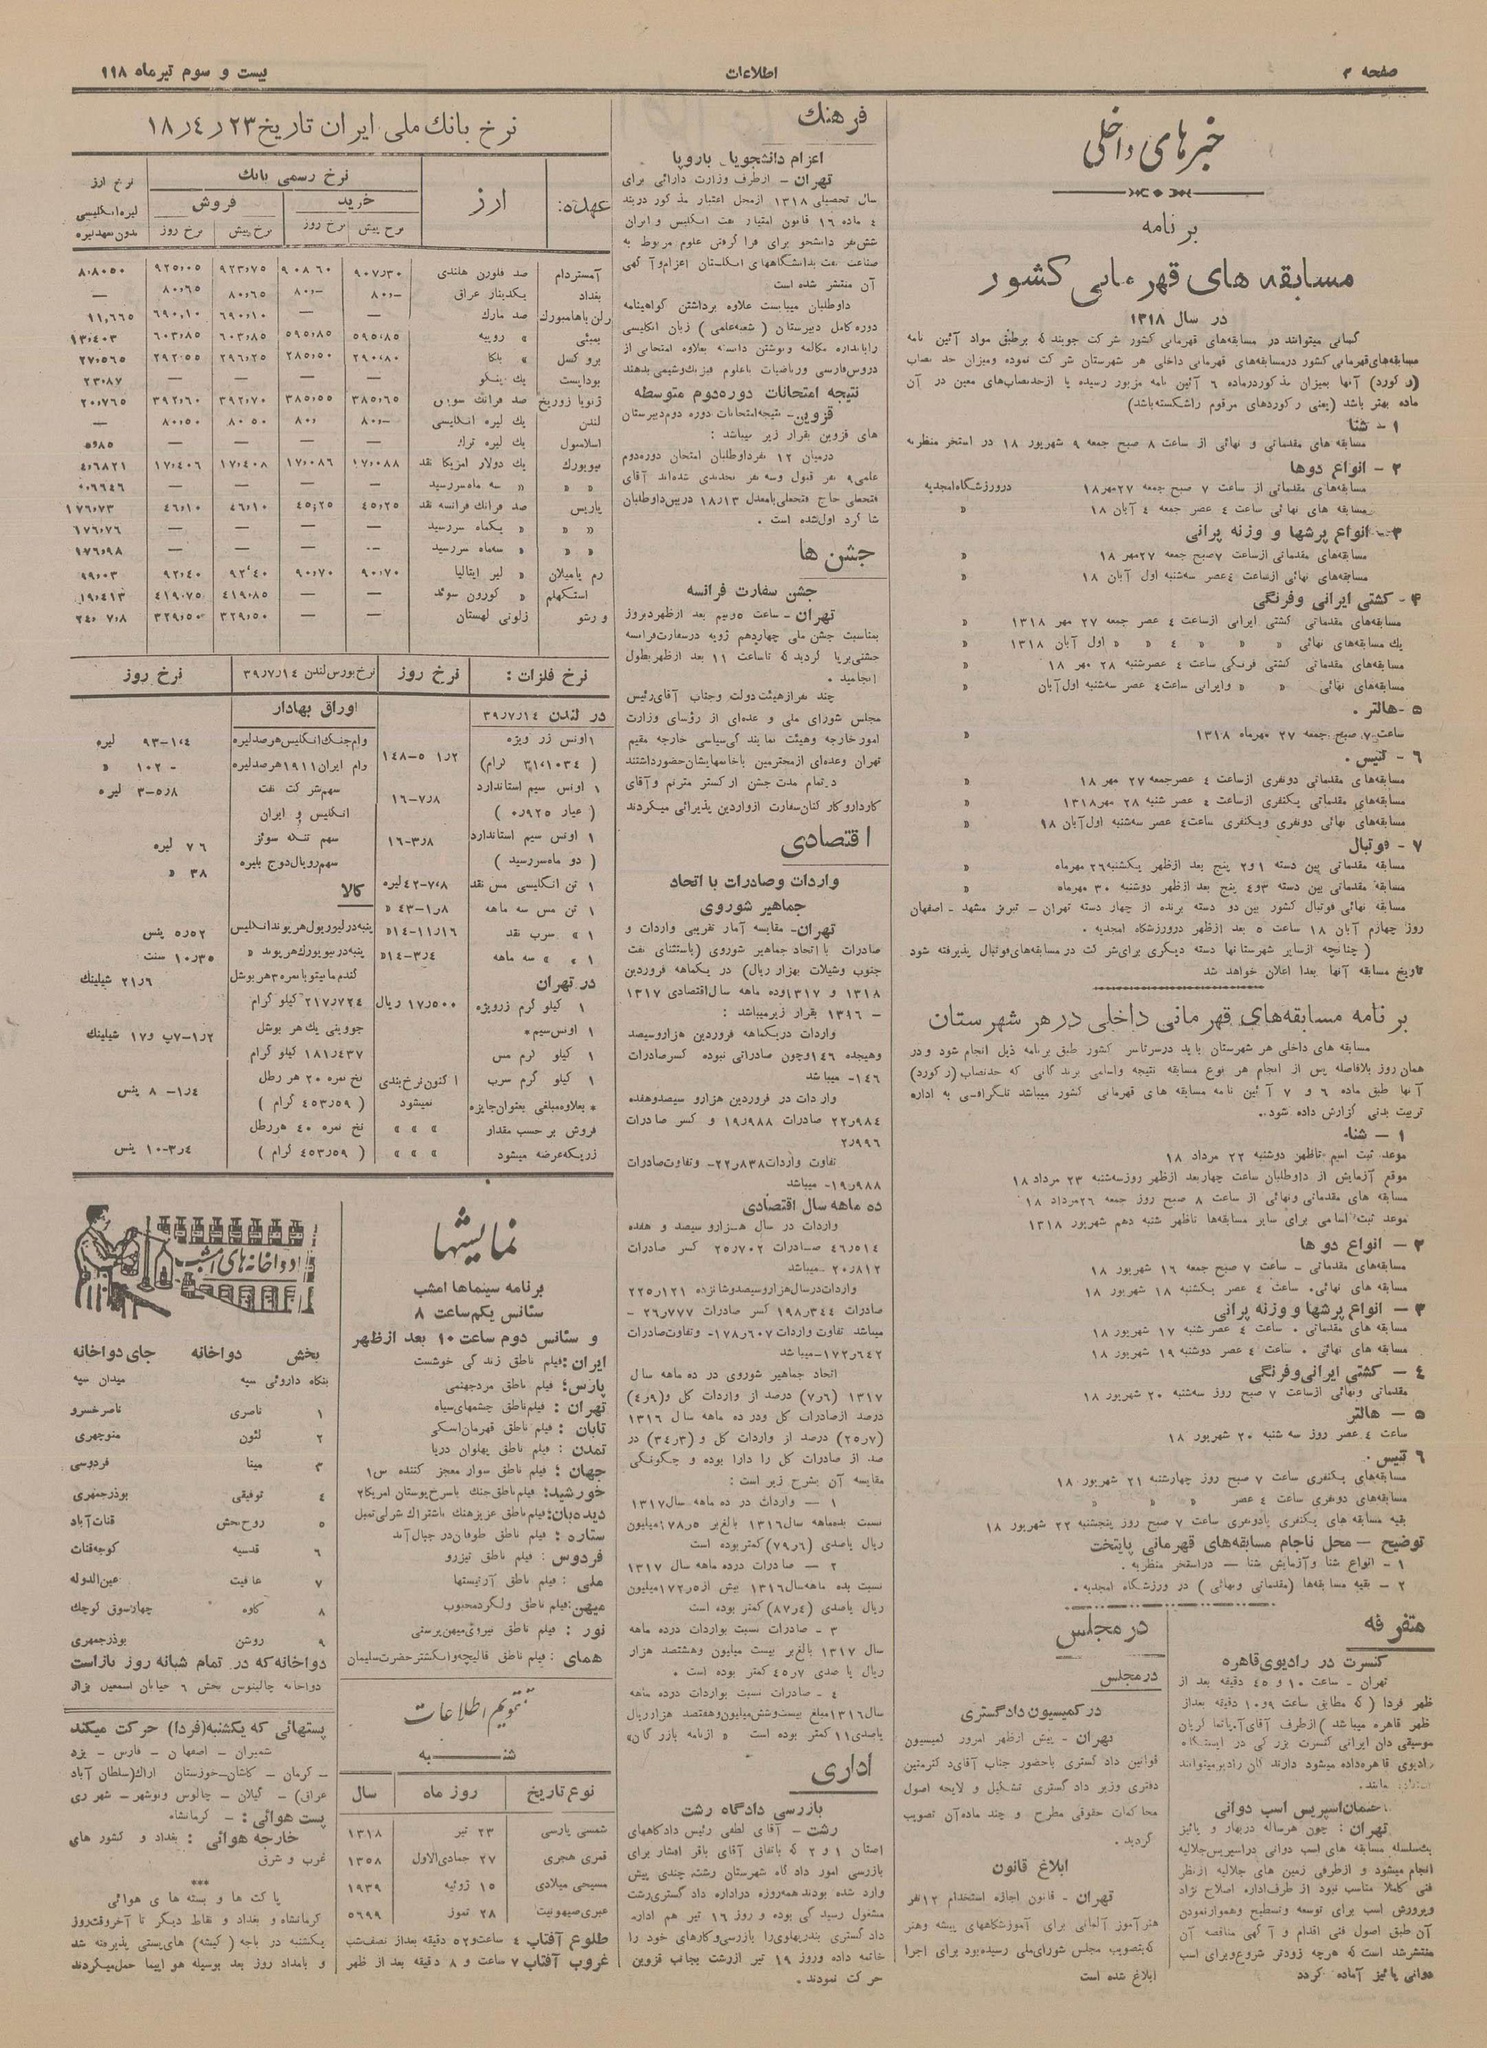 صفحه ۲
اطلاعات
بیست و سوم تیرماه ۱۱۸
خبرهای داخلی
برنامه
مسابقه های قهرمانی کشور
در سال ۱۳۱۸
کسانی میتوانند در مسابقه‌های قهرمانی کشور شرکت جویند که برطبق مواد آئین نامه
مسابقه‌های قهرمانی کشور درمسابقه‌های قهرمانی داخلی هر شهرستان شرکت نموده ومیزان حد نصاب
(رکورد) آنها بمیزان مذکور درماده ۶ آئین نامه مزبور رسیده یا ازحدنصاب‌های معین در آن
ماده بهتر باشد (یعنی رکوردهای مرقوم راشکسته باشد)
۱ - شنا
مسابقه های مقدماتی و نهائی از ساعت ۸ صبح جمعه ۹ شهریور ۱۸ در استخر منظریه
۲ - انواع دوها
مسابقه‌های مقدماتی از ساعت ۷ صبح جمعه ۲۷مهر۱۸ درورزشگاه امجدیه
مسابقه های نهائی ساعت ۴ عصر جمعه ۴ آبان ۱۸ »
۳ - انواع پرشها و وزنه پرانی
مسابقه‌های مقدماتی ازساعت ۷صبح جمعه ۲۷مهر ۱۸ »
مسابقه‌های نهائی ازساعت ۴ عصر سه‌شنبه اول آبان ۱۸ »
۴- کشتی ایرانی وفرنگی
مسابقه‌های مقدماتی کشتی ایرانی ازساعت ۴ عصر جمعه ۲۷ مهر ۱۳۱۸ »
یك مسابقه‌های نهائی » » » ۴ » » اول آبان ۱۳۱۸ »
مسابقه‌های مقدماتی کشتی فرنگی ساعت ۴ عصرشنبه ۲۸ مهر ۱۸ »
مسابقه‌های نهائی » » وایرانی ساعت ۴ عصر سه‌شنبه اول آبان »
۵ -هالتر .
ساعت ۷ صبح جمعه ۲۷ مهرماه ۱۳۱۸ »
۶ - تنیس .
مسابقه‌های مقدماتی دونفری ازساعت ۴ عصرجمعه ۲۷ مهر ۱۸ »
مسابقه‌های مقدماتی یکنفری ازساعت ۴ عصر شنبه ۲۸ مهر۱۳۱۸ »
مسابقه‌های نهائی دونفری ویکنفری ساعت۴ عصر سه‌شنبه اول آبان ۱۸ »
۷ - فوتبال
مسابقه مقدماتی بین دسته ۱و۲ پنج بعد ازظهر یکشنبه ۲۶ مهرماه »
مسابقه مقدماتی بین دسته ۳و۴ پنج بعد ازظهر دوشنبه ۳۰ مهرماه »
مسابقه نهائی فوتبال کشور بین دو دسته برنده از چهار دسته تهران - تبریز مشهد - اصفهان
روز چهارم آبان ۱۸ ساعت ۵ بعد ازظهر درورزشگاه امجدیه .
( چنانچه ازسایر شهرستانها دسته دیگری برای شرکت در مسابقه‌های فوتبال پذیرفته شود
تاریخ مسابقه آنها بعدا اعلان خواهد شد
برنامه مسابقه‌های قهرمانی داخلی در هر شهرستان
مسابقه های داخلی هر شهرستان باید درسرتاسر کشور طبق برنامه ذیل انجام شود و در
همان روز بلافاصله پس از انجام هر نوع مسابقه نتیجه واسامی برندگانی که حدنصاب (رکورد)
آنها طبق ماده ۶ و ۷ آئین نامه مسابقه های قهرمانی کشور میباشد تلگرافی به اداره
تربیت بدنی گزارش داده شود.
۱ - شنا
موعد ثبت اسم تاظهر دوشنبه ۲۲ مرداد ۱۸
موقع آزمایش از داوطلبان ساعت چهاربعد ازظهر روزسه‌شنبه ۲۳ مرداد ۱۸
مسابقه های مقدماتی ونهائی از ساعت ۸ صبح روز جمعه ۲۶مرداد ۱۸
موعد ثبت اسامی برای سایر مسابقه‌ها تاظهر شنبه دهم شهریور ۱۳۱۸
۲ - انواع دو ها
مسابقه‌های مقدماتی - ساعت ۷ صبح جمعه ۱۶ شهریور ۱۸
مسابقه های نهائی. ساعت ۴ عصر یکشنبه ۱۸ شهریور ۱۸
۳ - انواع پرشها و وزنه پرانی
مسابقه های مقدماتی . ساعت ۴ عصر شنبه ۱۷ شهریور ۱۸
مسابقه های نهائی . ساعت ۴ عصر دوشنبه ۱۹ شهریور ۱۸
۴ - کشتی ایرانی وفرنگی
مقدماتی ونهائی ازساعت ۷ صبح روز سه‌شنبه ۲۰ شهریور ۱۸
۵ - هالتر
ساعت ۴ عصر روز سه شنبه ۲۰ شهریور ۱۸
۶ تنیس .
مسابقه‌های یکنفری ساعت ۷ صبح روز چهارشنبه ۲۱ شهریور ۱۸
مسابقه‌های دونفری ساعت ۴ عصر » » »
بقیه مسابقه های یکنفری یادونفری ساعت ۷ صبح روز پنجشنبه ۲۲ شهریور ۱۸
توضیح - محل انجام مسابقه‌های قهرمانی پایتخت
۱ - انواع شنا وآزمایش شنا - دراستخر منظریه .
۲ - بقیه مسابقه‌ها (مقدماتی ونهائی) در ورزشگاه امجدیه .
متفرقه
کنسرت در رادیوی قاهره
تهران - ساعت ۱۰ و ۴۵ دقیقه بعد از
ظهر فردا ( که مطابق ساعت ۹و۱۰ دقیقه بعداز
ظهر قاهره میباشد ) ازطرف آقای
موسیقی دان ایرانی کنسرت بزرگی در ایستگاه
رادیوی قاهره داده میشود
اسپریس اسب دوانی
تهران : چون هرساله دربهار و پائیز
یکسلسله مسابقه های اسب دوانی دراسپریس جلالیه
انجام میشود و ازطرفی زمین های جلالیه ازنظر
فنی کاملا مناسب نبود از طرف اداره اصلاح نژاد
وپرورش اسب برای توسعه وتسطیح وهموارنمودن
آن طبق اصول فنی اقدام و آگهی مناقصه آن
منتشرشد است که هرچه زودتر شروع وبرای اسب
دوانی پائیز آماده گردد
در مجلس
در مجلس
در کمیسیون دادگستری
تهران - پیش ازظهر امروز کمیسیون
قوانین دادگستری باحضور جناب آقای دکترمتین
دفتری وزیر دادگستری تشکیل و لایحه اصول
محاکمات حقوقی مطرح و چند ماده آن تصویب
گردید .
ابلاغ قانون
تهران - قانون اجازه استخدام ۱۲نفر
هنرآموز آلمانی برای آموزشگاههای پیشه وهنر
که‌بتصویب مجلس شورای‌ملی رسیده‌بود برای اجرا
ابلاغ شده است
فرهنك
اعزام دانشجویان باروپا
تهران - ازطرف وزارت دارائی برای
سال تحصیلی ۱۳۱۸ ازمحل اعتبار مذکور دربند
۴ ماده ۱۶ قانون امتیاز نفت انگلیس و ایران
شش‌نفر دانشجو برای فراگرفتن علوم مربوط به
صناعت نفت بدانشگاههای انگلستان اعزام وآگهی
آن منتشر شده است
داوطلبان میبایست علاوه برداشتن گواهینامه
دوره کامل دبیرستان ( شعبه‌علمی ) زبان انگلیسی
رابانداره مکالمه ونوشتن دانسته بعلاوه امتحانی از
دروس فارسی وریاضیات باعلوم فیزیك‌وشیمی بدهند
نتیجه امتحانات دوره دوم متوسطه
قزوین- نتیجه امتحانات دوره دوم دبیرستان
های قزوین بقرار زیر میباشد :
درمیان ۱۲ نفرداوطلبان امتحان دوره دوم
علمی ۹ نفر قبول وسه نفر تجدیدی شده‌اند آقای
فتحعلی حاج فتحعلی بامعدل ۱۸٫۱۳ دربین داوطلبان
شاگرد اول شده است .
جشن ها
جشن سفارت فرانسه
تهران - ساعت ۵ونیم بعد ازظهر دیروز
بمناسبت جشن ملی چهاردهم ژویه درسفارت فرانسه
جشنی برپا گردید که تاساعت ۱۱ بعد ازظهر بطول
انجامید .
چند نفرازهیئت دولت وجناب آقای رئیس
مجلس شورای ملی و عده‌ای از رؤسای وزارت
امور خارجه وهیئت نمایندگی سیاسی خارجه مقیم
تهران وعده‌ای ازمحترمین باخانمهایشان حضورداشتند
درتمام مدت جشن ارکستر مترنم وآقای
کاردار و کارکنان سفارت ازواردین پذیرائی میکردند
اقتصادی
واردات وصادرات با اتحاد
جماهیر شوروی
تهران- مقایسه آمار تقریبی واردات و
صادرات با اتحاد جماهیر شوروی (باستثنای نفت
جنوب وشیلات بهزار ریال) در یکماهه فروردین
۱۳۱۸ و ۱۳۱۷وده ماهه سال اقتصادی ۱۳۱۷
- ۱۳۱۶ بقرار زیرمیباشد :
واردات دریکماهه فروردین هزاروسیصد
وهیجده ۱۴۶وچون صادراتی نبوده کسرصادرات
۱۴۶- میباشد
واردات در فروردین هزارو سیصدوهفده
۲۲٫۹۸۴ صادرات ۱۹٫۹۸۸ و کسر صادرات
۲٫۹۹۶
تفاوت واردات ۲۲٫۸۳۸- وتفاوت صادرات
۱۹٫۹۸۸- میباشد
ده ماهه سال اقتصادی
واردات در سال هزارو سیصد و هفده
۴۶٫۵۱۴ صادرات ۲۵٫۷۰۲ کسر صادرات
۲۰٫۸۱۲ - میباشد
واردات درسال هزاروسیصدوشانزده ۲۲۵٫۱۲۱
صادرات ۱۹۸٫۳۴۴ کسر صادرات ۲۶٫۷۷۷ -
میباشد تفاوت واردات ۱۷۸٫۶۰۷- وتفاوت صادرات
۱۷۲٫۶۴۲- میباشد
اتحاد جماهیر شوروی در ده ماهه سال
۱۳۱۷ (۷٫۶) درصد از واردات کل و (۴٫۹)
درصد ازصادرات کل ودر ده ماهه سال ۱۳۱۶
(۲۵٫۷) درصد از واردات کل و (۳۴٫۳) در
صد از صادرات کل را دارا بوده و چگونگی
مقایسه آن بشرح زیر است :
۱ - واردات در ده ماهه سال۱۳۱۷
نسبت بده‌ماهه سال ۱۳۱۶ بالغ‌بر ۱۷۸٫۵میلیون
ریال یاصدی (۷۹٫۶) کمتر بوده است
۲ - صادرات درده ماهه سال ۱۳۱۷
نسبت بده ماهه‌سال ۱۳۱۶ بیش از ۱۷۲٫۵میلیون
ریال یاصدی (۸۷٫۴) کمتر بوده است
۳ - صادرات نسبت بواردات درده ماهه
سال ۱۳۱۷ بالغ‌بر بیست میلیون وهشتصد هزار
ریال یا صدی ۴۵٫۷ کمتر بوده است .
۴ - صادرات نسبت بواردات درده ماهه
سال ۱۳۱۶ مبلغ بیست‌وشش‌میلیون‌وهفتصد هزارریال
یاصدی ۱۱ کمتر بوده است « ازنامه بازرگان»
اداری
بازرسی دادگاه رشت
رشت - آقای لطفی رئیس دادگاههای
استان ۱ و ۲ که باتفاق آقای باقر افشار برای
بازرسی امور دادگاه شهرستان رشت چندی پیش
وارد شده بودند همه‌روزه دراداره دادگستری‌رشت
مشغول رسیدگی بوده و روز ۱۶ تیر هم اداره
دادگستری بندرپهلوی‌را بازرسی‌وکارهای خود را
خاتمه داده وروز ۱۹ تیر ازرشت بجانب قزوین
حرکت نمودند .
نرخ بانك ملی ایران تاریخ ۲۳ ر ۴ ر ۱۸
عهده: ارز نرخ رسمی بانك نرخ ارز
خرید فروش لیره انگلیسی
نرخ پیش نرخ روز نرخ پیش نرخ روز بدون تعهدلیره
آمستردام صد فلورن هلندی ۹۰۷٫۳۰ ۹۰۸٫۶۰ ۹۲۳٫۷۵ ۹۲۵٫۰۵ ۸٫۸۰۵۰
بغداد یکدینار عراق ۸۰٫- ۸۰٫- ۸۰٫۶۵ ۸۰٫۶۵ -
برلن یاهامبورك صد مارك - - ۶۹۰٫۱۰ ۶۹۰٫۱۰ ۱۱٫۶۶۵
بمبئی » روپیه ۵۹۵٫۸۵ ۵۹۵٫۸۵ ۶۰۳٫۸۵ ۶۰۳٫۸۵ ۱۳٫۴۰۳
بروکسل » بلگا ۲۹۰٫۸۰ ۲۸۵٫۰۰ ۲۹۶٫۲۵ ۲۹۲٫۵۵ ۲۷٫۵۶۵
بوداپست یك پنگو - - - - ۲۳٫۸۷
ژنویازوریخ صد فرانك سویس ۳۸۵٫۶۵ ۳۸۵٫۵۵ ۳۹۲٫۷۰ ۳۹۲٫۶۰ ۲۰٫۷۶۵
لندن یك لیره انگلیسی ۸۰٫- ۸۰٫ ۸۰٫۵۰ ۸۰٫۵۰ -
اسلامبول یك لیره ترك - - - - ۵٫۸۵
نیویورك یك دولار امریکا نقد ۱۷٫۰۸۸ ۱۷٫۰۸۶ ۱۷٫۴۰۸ ۱۷٫۴۰۶ ۴٫۶۸۲۱
» » سه ماه سررسید - - - - ۰٫۶۶۴۶
پاریس صد فرانك فرانسه نقد ۴۵٫۲۵ ۴۵٫۲۵ ۴۶٫۱۰ ۴۶٫۱۰ ۱۷۶٫۷۳
» » یکماه سررسید - - - - ۱۷۶٫۷۶
» » سه‌ماه سررسید - - - - ۱۷۶٫۹۸
رم یامیلان » لیر ایتالیا ۹۰٫۷۰ ۹۰٫۷۰ ۹۲٫۴۰ ۹۲٫۴۰ ۹۹٫۰۳
استکهلم » کورون سوئد - - ۴۱۹٫۸۵ ۴۱۹٫۷۵ ۱۹٫۴۱۳
ورشو زلوتی لهستان - - ۳۲۹٫۵۰ ۳۲۹٫۵۰ ۲۴٫۷٫۸
نرخ فلزات : نرخ روز نرخ بورس لندن ۳۹٫۷٫۱۴ نرخ روز
در لندن ۳۹٫۷٫۱۴
۱ اونس زر ویژه ۱۴۸-۵ ۱٫۲
( ۳۱٫۱۰۳۴ گرام)
۱ اونس سیم استاندارد ۱۶-۷٫۸
( عیار ۰٫۹۲۵ )
۱ اونس سیم استاندارد ۱۶-۳٫۸
( دو ماه سررسید )
۱ تن انگلیسی مس نقد ۴۲-۷٫۸ لیره
۱ تن مس سه ماهه ۴۳-۱٫۸ »
۱ » سرب نقد ۱۴-۱۱٫۱۶ »
۱ » » سه ماهه ۱۴-۳٫۴ »
در تهران
۱ کیلو گرم زرویژه ۱۷٫۵۰۰ ریال
۱ اونس سیم*
۱ کیلو گرم مس
۱ کیلو گرم سرب اکنون نرخ‌بندی
* بعلاوه مبلغی بعنوان جایزه نمیشود
فروش بر حسب مقدار » » »
زریکه عرضه میشود » » »
اوراق بهادار
وام جنك انگلیس هر صد لیره ۹۳-۱٫۴ لیره
وام ایران ۱۹۱۱ هرصد لیره ۱۰۲ - »
سهم شرکت نفت ۳-۵٫۸ لیره
انگلیس و ایران
سهم تنگه سوئز ۷۶ لیره
سهم رویال دوچ بلیره ۳۸ »
کالا
پنبه درلیورپول هر پوند انگلیس ۵٫۵۲ پنس
پنبه درنیویورك هر پوند » ۱۰٫۳۵ سنت
گندم مانیتوبا نمره ۳ هر بوشل ۲۱٫۶ شیلینك
۲۱۷٫۷۲۴ کیلو گرام
جو وینی یك هر بوشل ۷-۱٫۲ پ و ۱۷ شیلینك
۱۸۱٫۴۳۷ کیلو گرام
نخ نمره ۲۰ هر رطل ۸ -۱٫۴ پنس
( ۴۵۳٫۵۹ گرام )
نخ نمره ۴۰ هر رطل ۱۰-۳٫۴ پنس
( ۴۵۳٫۵۹ گرام )
نمایشها
برنامه سینماها امشب
سئانس یکم ساعت ۸
و سئانس دوم ساعت ۱۰ بعد از ظهر
ایران : فیلم ناطق زندگی خوشست
پارس: فیلم ناطق مردجهنمی
تهران : فیلم ناطق چشمهای سیاه
تابان : فیلم ناطق قهرمان اسکی
تمدن : فیلم ناطق پهلوان دریا
جهان : فیلم ناطق سوار معجز کننده س۱
خورشید: فیلم ناطق جنك باسرخ پوستان امریکا۲
دیده‌بان: فیلم ناطق عزیز هنك باشتراك شرلی تمپل
ستاره : فیلم ناطق طوفان در جبال آند
فردوس : فیلم ناطق تیزرو
ملی : فیلم ناطق آرتیستها
میهن: فیلم ناطق ولگرد محبوب
نور : فیلم ناطق نیروی میهن پرستی
همای : فیلم ناطق قالیچه وانگشتر حضرت سلیمان
تقویم اطلاعات
شنبه
نوع تاریخ روز ماه سال
شمسی پارسی ۲۳ تیر ۱۳۱۸
قمری هجری ۲۷ جمادی‌الاول ۱۳۵۸
مسیحی میلادی ۱۵ ژوئیه ۱۹۳۹
عبری صیهونیت ۲۸ تموز ۵۶۹۹
طلوع آفتاب ۴ ساعت و ۵۲ دقیقه بعد از نصف شب
غروب آفتاب ۷ ساعت و ۸ دقیقه بعد از ظهر
دواخانه‌های امشب
بخش دواخانه جای دواخانه
بنگاه داروئی سپه میدان سپه
۱ ناصری ناصر خسرو
۲ لئون منوچهری
۳ مینا فردوسی
۴ توفیقی بوذرجمهری
۵ روح‌بخش قنات آباد
۶ قدسیه کوچه قنات
۷ عافیت عین‌الدوله
۸ کاوه چهارسوق کوچك
۹ روشن بوذرجمهری
دواخانه که در تمام شبانه روز بازاست
دواخانه جالینوس بخش ۶ خیابان اسمعیل بزاز
پستهائی که یکشنبه(فردا) حرکت میکند
شمیران - اصفهان - فارس - یزد
- کرمان - کاشان-خوزستان اراك(سلطان آباد
عراق) - گیلان - چالوس ونوشهر - شهر ری
پست هوائی : - کرمانشاه
خارجه هوائی : بغداد و کشور های
غرب و شرق
***
پاکت ها و بسته های هوائی
کرمانشاه و بغداد و نقاط دیگر تا آخروقت‌روز
یکشنبه در باجه (گیشه) های پستی پذیرفته شد
و بامداد روز بعد بوسیله هواپیما حمل میگردند